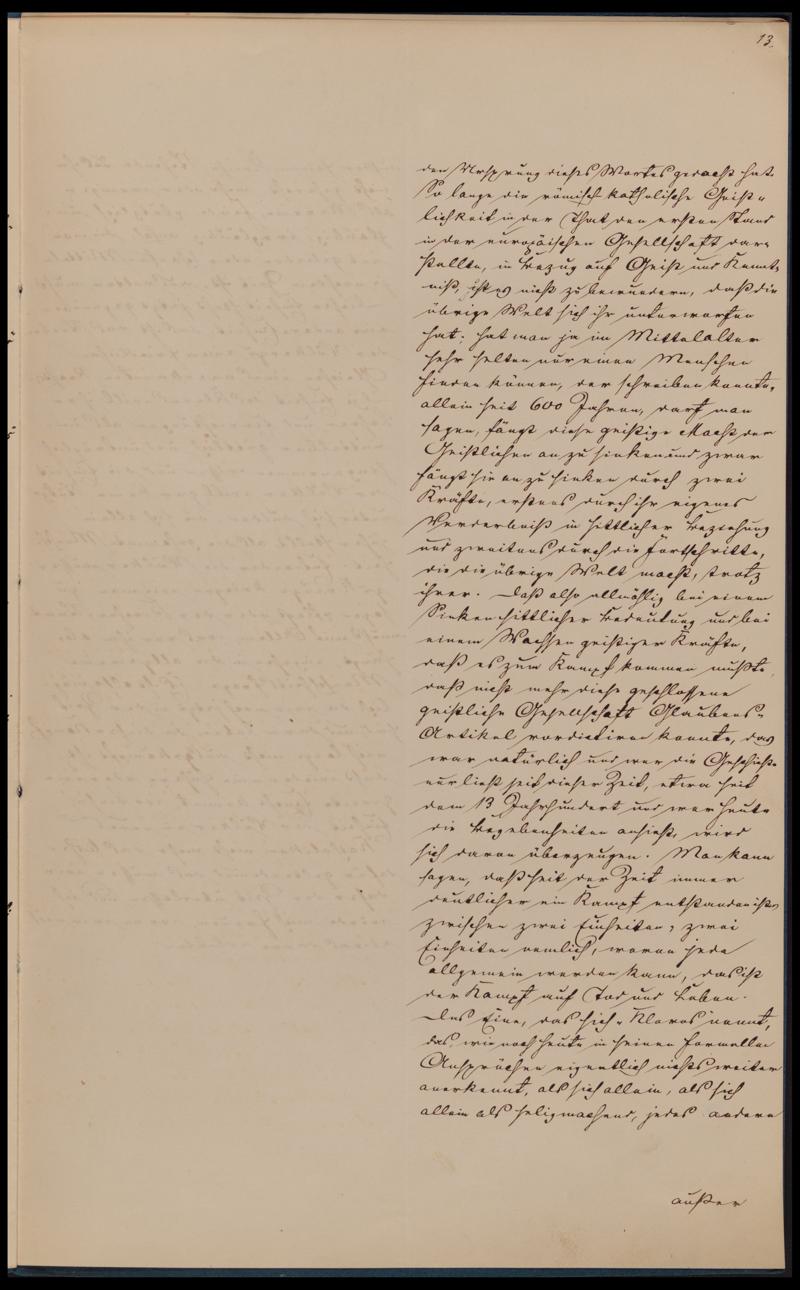 13.
den Ursprung dieses Wortes gedacht hat.
So lange die römisch katholische Geist-
lichkeit in der That den ersten Stand
in der europäischen Gesellschaft dar-
stellte, in Bezug auf Geist und Kennt-
niß, ist es nicht zu bewundern, daß die
übrige Welt sich ihr unterworfen
hat; hat man ja im Mittelalter
sehr selten nur einen Menschen
finden können, der schreiben konnte,
allein seit 600 Jahren, darf man
sagen, fängt diese geistige Macht der
Geistlichen an zu sinken und zwar
fängt sie an zu sinken durch zwei
Kräfte, erstens durch ihr eigenes
Verderbniß in sittlicher Beziehung
und zweitens durch die Fortschritte,
die die übrige Welt macht, trotz
ihrer. Daß also allmählig bei einem
Sinken sittlicher Bedeutung und bei
einem Wachsen geistiger Kräfte,
daß es zum Kampf kommen mußte,
daß nicht mehr diese geschlossene
geistliche Gesellschaft Glaubens-
Artikel vordictiren konnte, das
war natürlich und wer die Geschichte
nur liest seit dieser Zeit, etwa seit
dem 13 Jahrhundert und wer heute
die Begebenheiten ansieht, wird
sich davon überzeugen. Man kann
sagen, daß seit der Zeit immer
deutlicher ein Kampf entstanden ist,
zwischen zwei Einheiten; zwei
Einheiten nemlich, wovon jede
allgemein werden kann, das ist
der Kampf auf Tod und Leben.
Das Eine, das sich „Kleros" nennt,
das, wie noch heute in seinen formellen
Ansprüchen eigentlich nichts weiter
anerkennt, als sich allein, als sich
allein als seligmachend, jedes andere
außer